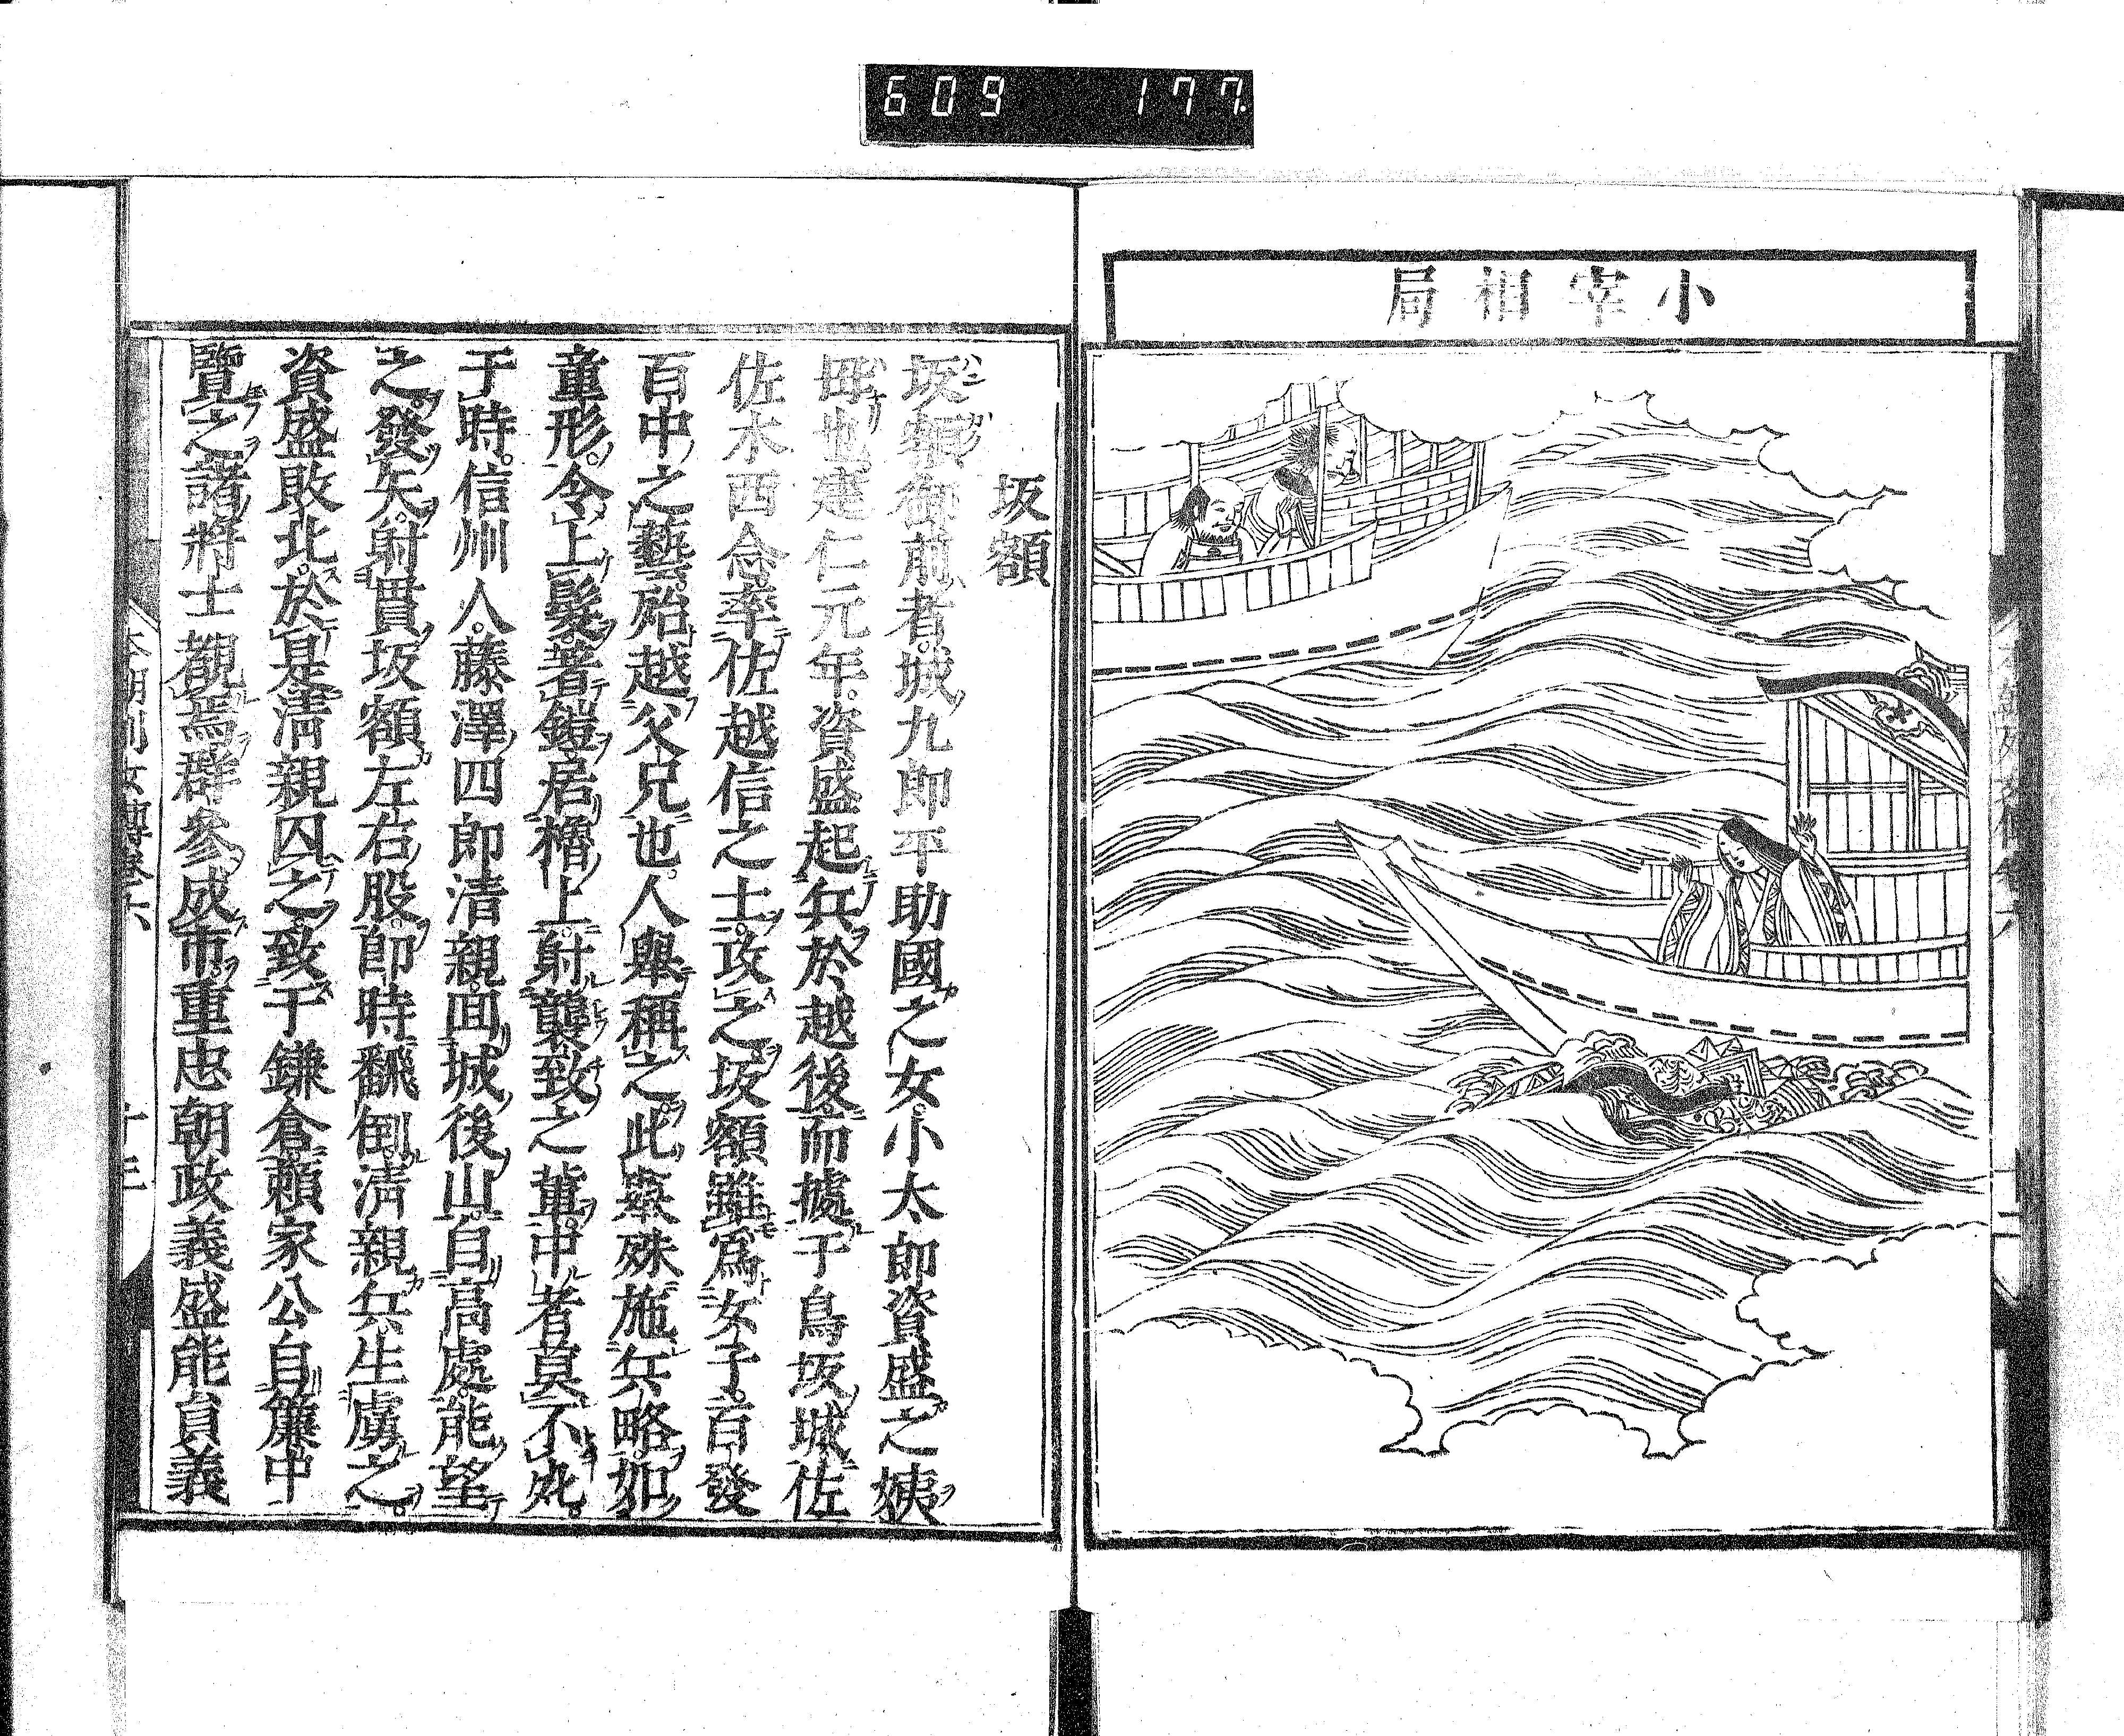 609 177
小宰相局
坂額
坂額御前者城九郎平助國之女小太郎資盛之姨
母也建仁元年資盛起兵於越後而據于鳥坂城佐
佐木西念率佐越信之士攻之坂額雖爲女子百發
百中之藝殆越父兄也人舉稱之此寨殊施兵略如
童形令上髮著鎧居櫓上射襲致之輩中者莫不死
于時信州人藤澤四郎清親面城後山自高處能望
之發矢射貫坂額左右股即時飜倒清親兵生虜之
資盛敗北於是清親囚之致于鎌倉賴家公自簾中
覽之諸將士觀焉群參成市重忠朝政義盛能員義
本朝列女傳卷六
十三